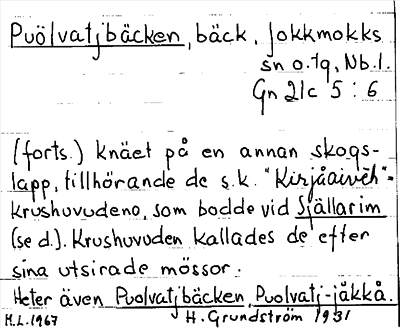 Puölvatjbäcken, bäck, Jokkmokks
sn o. tg, Nb. l.
Gn 21c 5 : 6
(forts.) knäet på en annan skogs-
lapp, tillhörande de s.k. "Kirjåaiveh"-
krushuvudena, som bodde vid Själlarim
(se d.). Krushuvuden kallades de efter
sina utsirade mössor.
Heter även Puolvatjbäcken, Puolvatj-jåkkå.
M.L. 1967 H. Grundström 1931